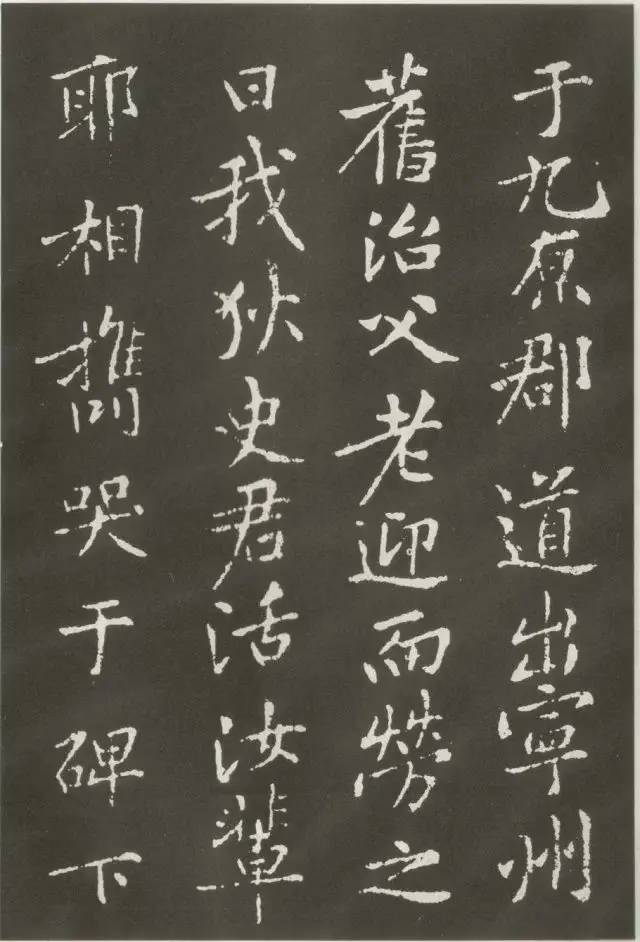 于九原郡道出寧州
舊治父老迎而勞之
曰我狄史君活汝輩
耶相攜哭于碑下